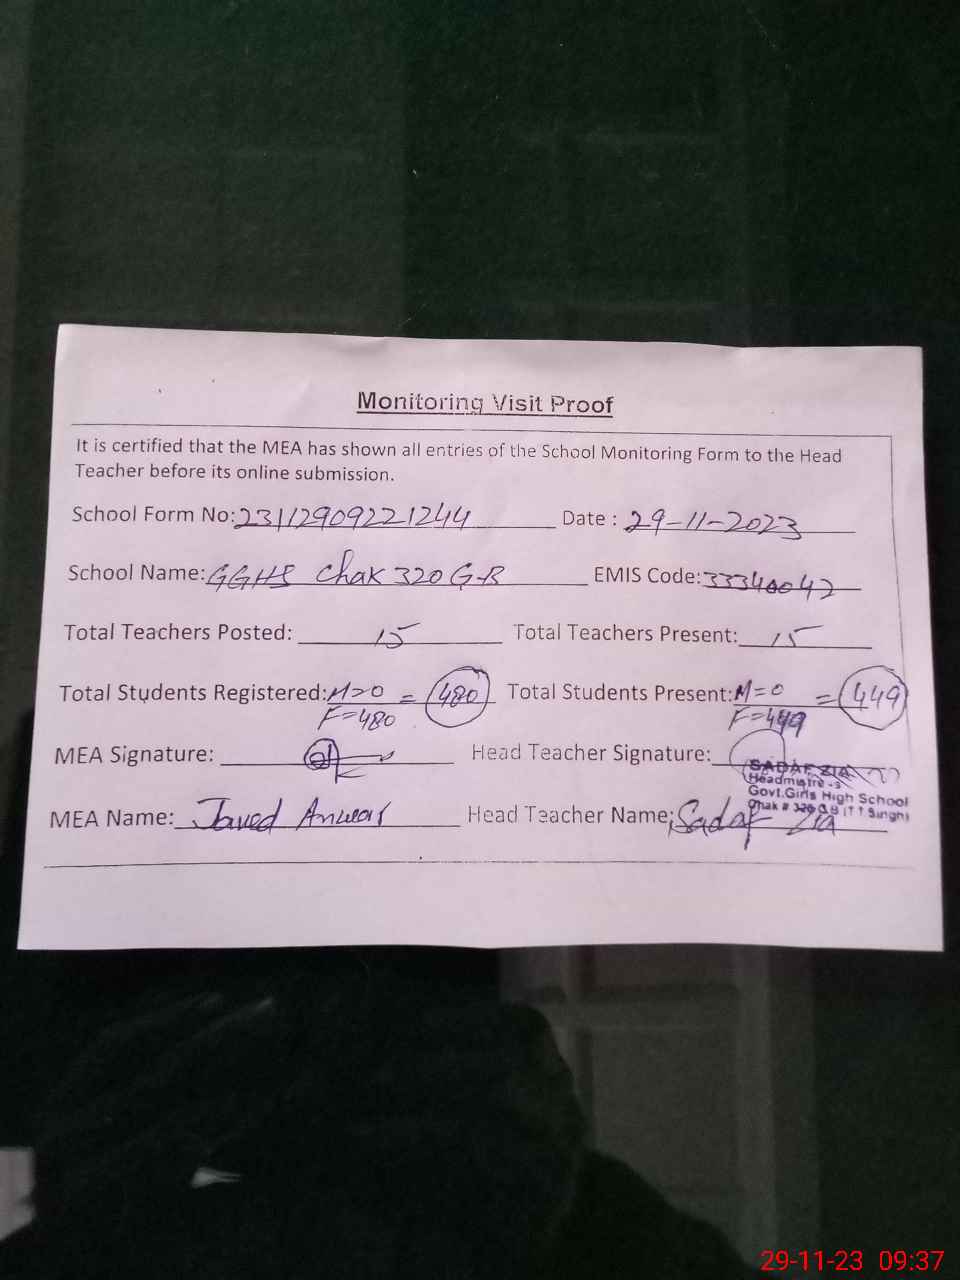 Monitoring Visit Proof
It is certified that the MEA has shown all entries of the School Monitoring Form to the Head
Teacher before its online submission.
School Form No: 23112909221244 Date : 29-11-2023
School Name: GGHS Chak 320 G-B EMIS Code: 33340042
Total Teachers Posted: 15 Total Teachers Present: 15
Total Students Registered: M=0 = 480 Total Students Present: M=0 = 449
F=480 F=449
MEA Signature: Head Teacher Signature:
SADAF ZIA
Headmistress
Govt.Girls High School
Chak # 320 GB (T T Singh)
MEA Name: Javed Anwar Head Teacher Name: Sadaf Zia
29-11-23 09:37